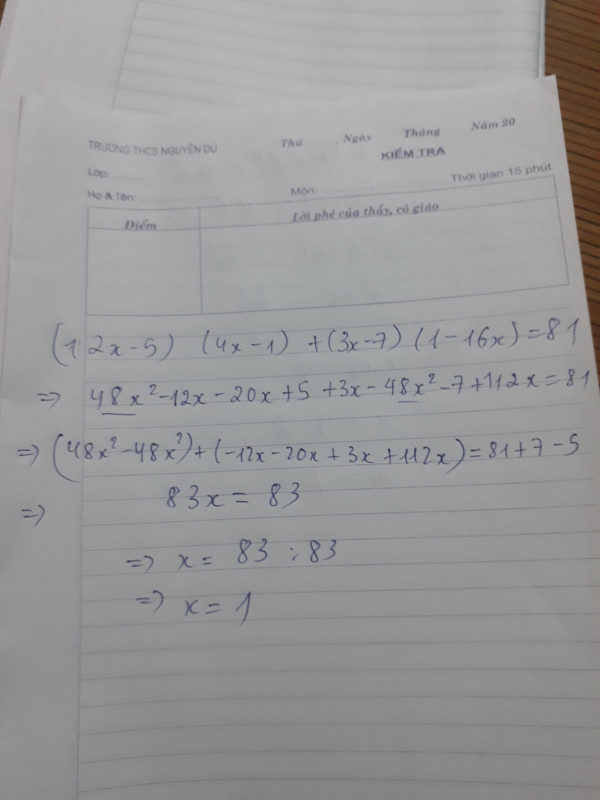 TRƯỜNG THCS NGUYỄN DU
Thứ ..... Ngày Tháng Năm 20
Lớp: ........
KIỂM TRA
Họ & Tên: Môn: Thời gian 15 phút
Điểm
Lời phê của thầy, cô giáo
(12x-5) (4x-1) +(3x-7) (1-16x)=81
=> 48x²-12x-20x+5+3x-48x²-7+112x=81
=> (48x²-48x²)+(-12x-20x+3x+112x)=81+7-5
=> 83x = 83
=> x = 83 : 83
=> x = 1